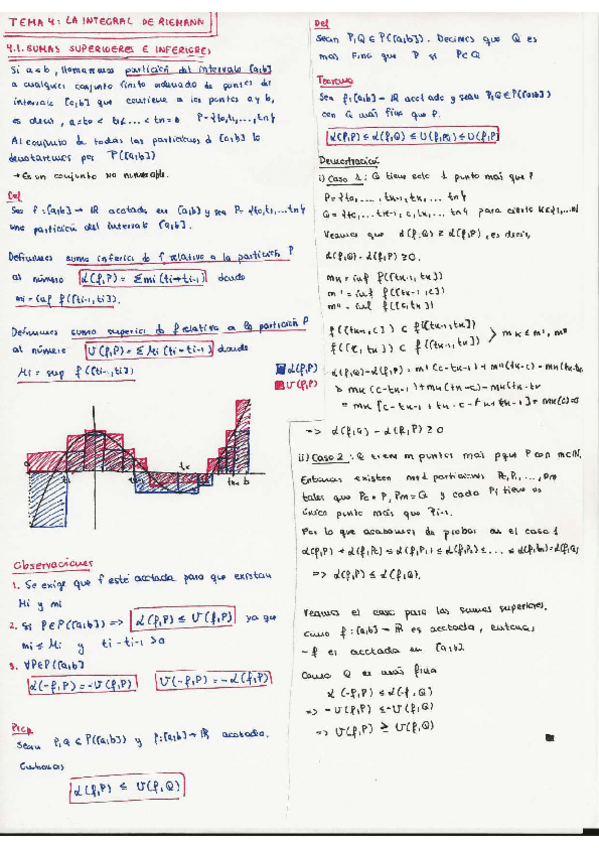 TEMA 4: LA INTEGRAL DE RIEMANN
4.1. SUMAS SUPERIORES E INFERIORES
Si a<b, llamaremos partición del intervalo [a,b]
a cualquier conjunto finito ordenado de puntos del
intervalo [a,b] que contiene a los puntos a y b,
es decir, a=t0 < t1 < ... < tn = b P={t0,t1,...,tn}
Al conjunto de todas las particiones de [a,b] lo
denotaremos por P([a,b])
→ Es un conjunto no numerable.
Def
Sea f:[a,b]→ℝ acotada en [a,b] y sea P={t0,t1,...tn}
una partición del intervalo [a,b].
Definimos suma inferior de f relativa a la partición P
al número L(f,P) = Σmi(ti-ti-1) donde
mi = inf f([ti-1,ti]).
Definimos suma superior de f relativa a la partición P
al número U(f,P) = ΣMi(ti-ti-1) donde
Mi = sup f([ti-1,ti])
L(f,P)
U(f,P)
a t1 tk tn-1 b
Observaciones
1. Se exige que f esté acotada para que existan
Mi y mi
2. Si P∈P([a,b]) => L(f,P) ≤ U(f,P) ya que
mi ≤ Mi y ti-ti-1 > 0
3. ∀P∈P([a,b])
L(-f,P) = -U(f,P) U(-f,P) = -L(f,P)
Prop
Sean P,Q ∈ P([a,b]) y f:[a,b]→ℝ acotada.
Entonces
L(f,P) ≤ U(f,Q)
Def
Sean P,Q ∈ P([a,b]). Decimos que Q es
más fina que P si P⊂Q
Teorema
Sea f:[a,b]→ℝ acotada y sean P,Q∈P([a,b])
con Q más fina que P.
L(f,P) ≤ L(f,Q) ≤ U(f,Q) ≤ U(f,P)
Demostración
i) Caso 1: Q tiene solo 1 punto más que P
P={t0,...., tk-1, tk, ... tn}
Q={t0,... tk-1, c, tk, ... tn} para cierto k∈{1,...n}
Veamos que L(f,Q) ≥ L(f,P), es decir,
L(f,Q) - L(f,P) ≥ 0.
mk = inf f([tk-1, tk])
m' = inf f([tk-1, c])
m'' = inf f([c, tk])
f([tk-1,c]) ⊂ f([tk-1,tk])
f([c, tk]) ⊂ f([tk-1, tk]) > mk ≤ m', m''
L(f,Q)-L(f,P) = m'(c-tk-1) + m''(tk-c) - mk(tk-tk-1)
≥ mk(c-tk-1) + mk(tk-c) - mk(tk-tk
= mk[c-tk-1 + tk-c-tk+tk-1] = mk(0)=0
=> L(f,Q) - L(f,P) ≥ 0
ii) Caso 2: Q tiene m puntos más que P con m∈ℕ.
Entonces existen m+1 particiones P0,P1,...,Pm
tales que P0=P, Pm=Q y cada Pi tiene un
único punto más que Pi-1.
Por lo que acabamos de probar en el caso 1
L(f,P) = L(f,P0) ≤ L(f,P1) ≤ L(f,P2) ≤ ... ≤ L(f,Pm) = L(f,Q)
=> L(f,P) ≤ L(f,Q).
Veamos el caso para las sumas superiores.
Como f:[a,b]→ℝ es acotada, entonces
-f es acotada en [a,b].
Como Q es más fina
L(-f,P) ≤ L(-f,Q)
=> -U(f,P) ≤ -U(f,Q)
=> U(f,P) ≥ U(f,Q)